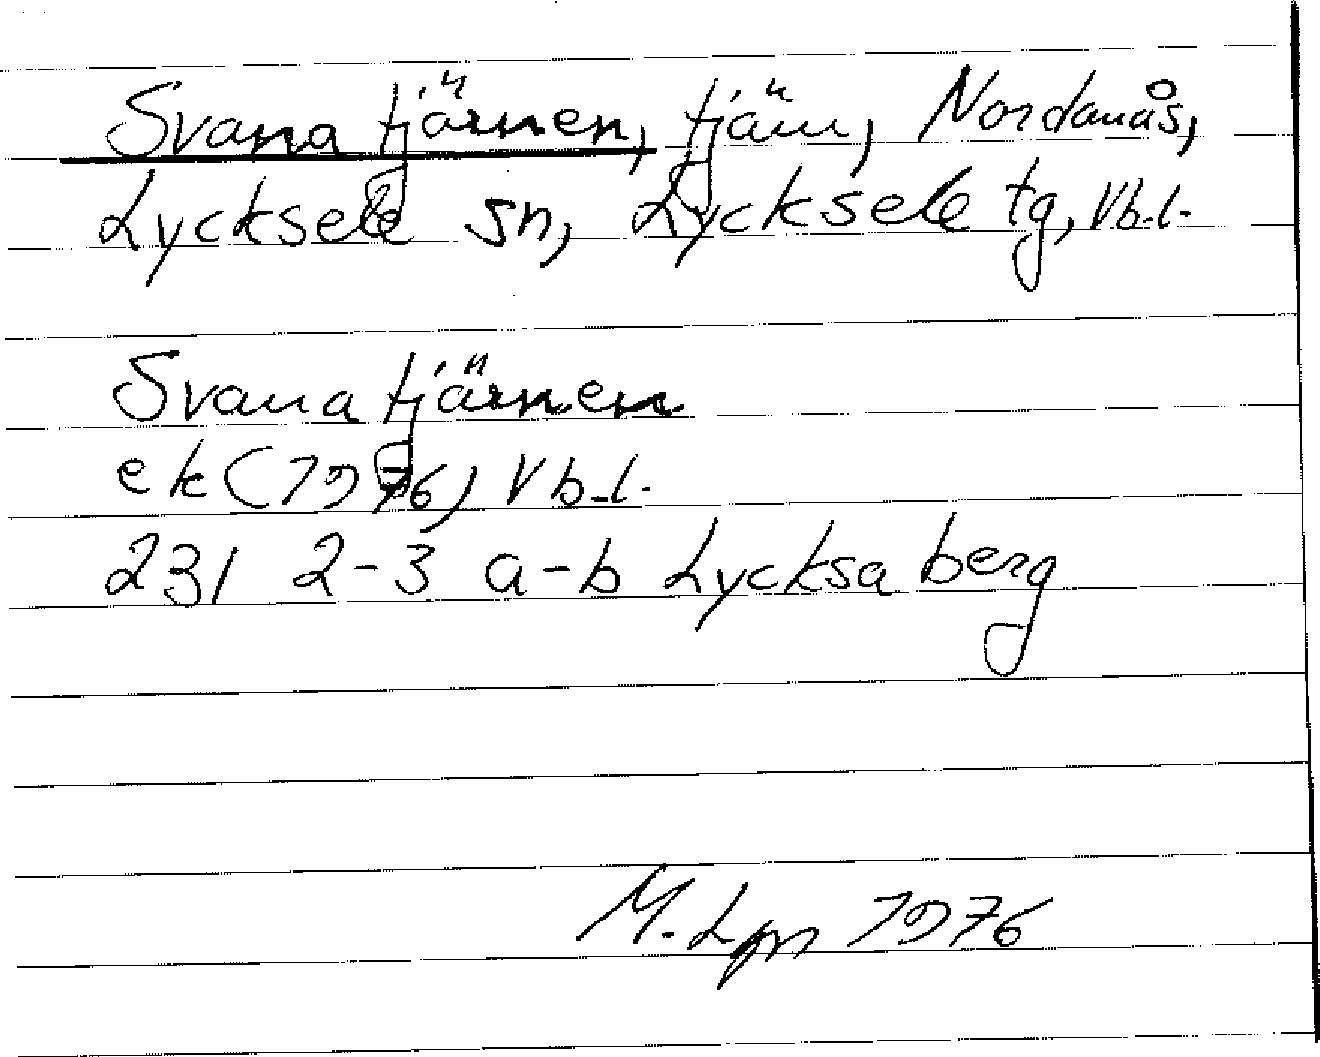 Svanatjärnen, tjärn, Nordanås,
Lycksele sn, Lycksele tg, Vb.l.
Svanatjärnen
ek (1976) Vb.l.
231 2-3 a-b Lycksaberg
M. Lpn 1976